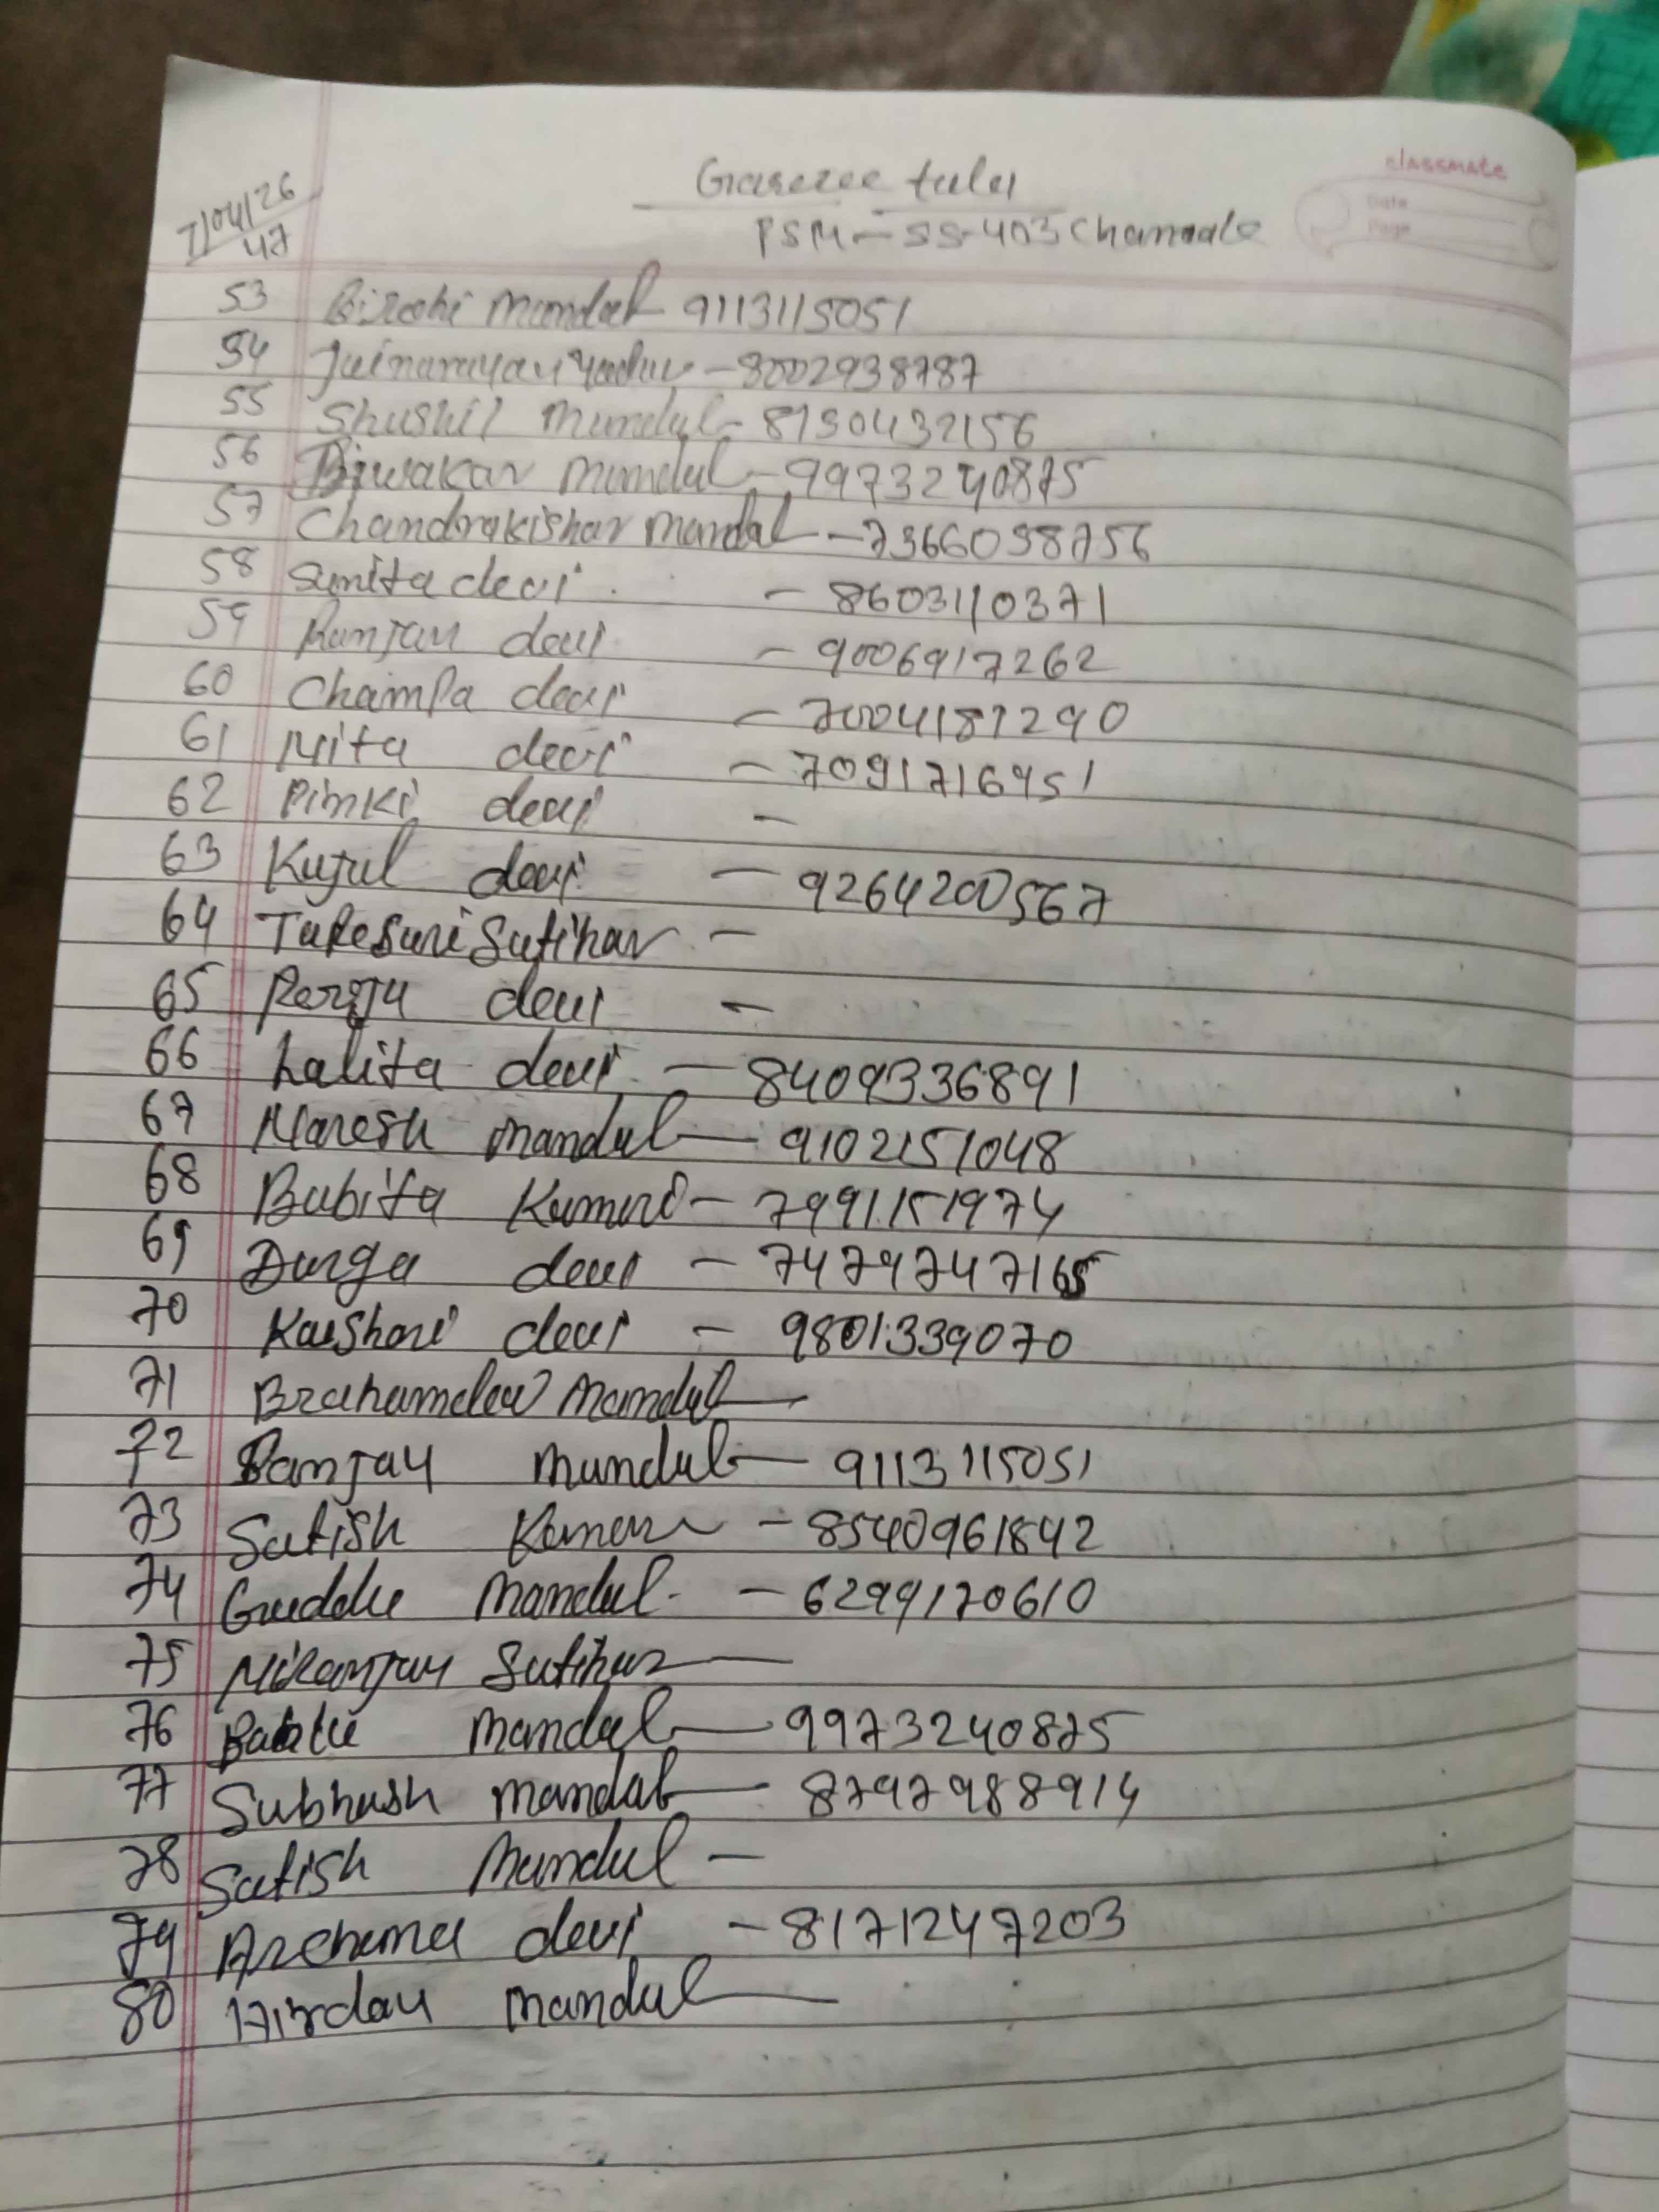 classmate
Date
Page
7/04/26
47
tula
PSM-SS-403 Chamaale
53 Birohi Mandal 9113115051
54 Jainarayan Yadav - 8002938787
55 Shushil Mundul - 8130432156
56 Diwakar Mumdul - 9973240875
57 Chandrakishar Mandal - 7366098756
58 Sunita devi - 8603110371
59 Ranjan devi - 9006917262
60 Champa devi - 7004187290
61 Nita devi - 7091716951
62 Pinki devi -
63 Kujul devi - 9264200567
64 Takesuri Sutihar -
65 devi -
66 Lalita devi - 8409336891
67 Naresh Mandul - 9102151048
68 Bubita Kumari - 7991151974
69 Durga devi - 7479747165
70 Kaushari devi - 9801339070
71 Brahamdev Mandul -
72 Ranjay Mundul - 9113115051
73 Satish Kumar - 8540961842
74 Guddu Mandul - 6299170610
75 Niranjan Sutihar -
76 Bablu Mandul - 9973240875
77 Subhash Mandal - 8797988914
78 Satish Mundul -
79 Archana devi - 8171247203
80 Hirday Mandul -